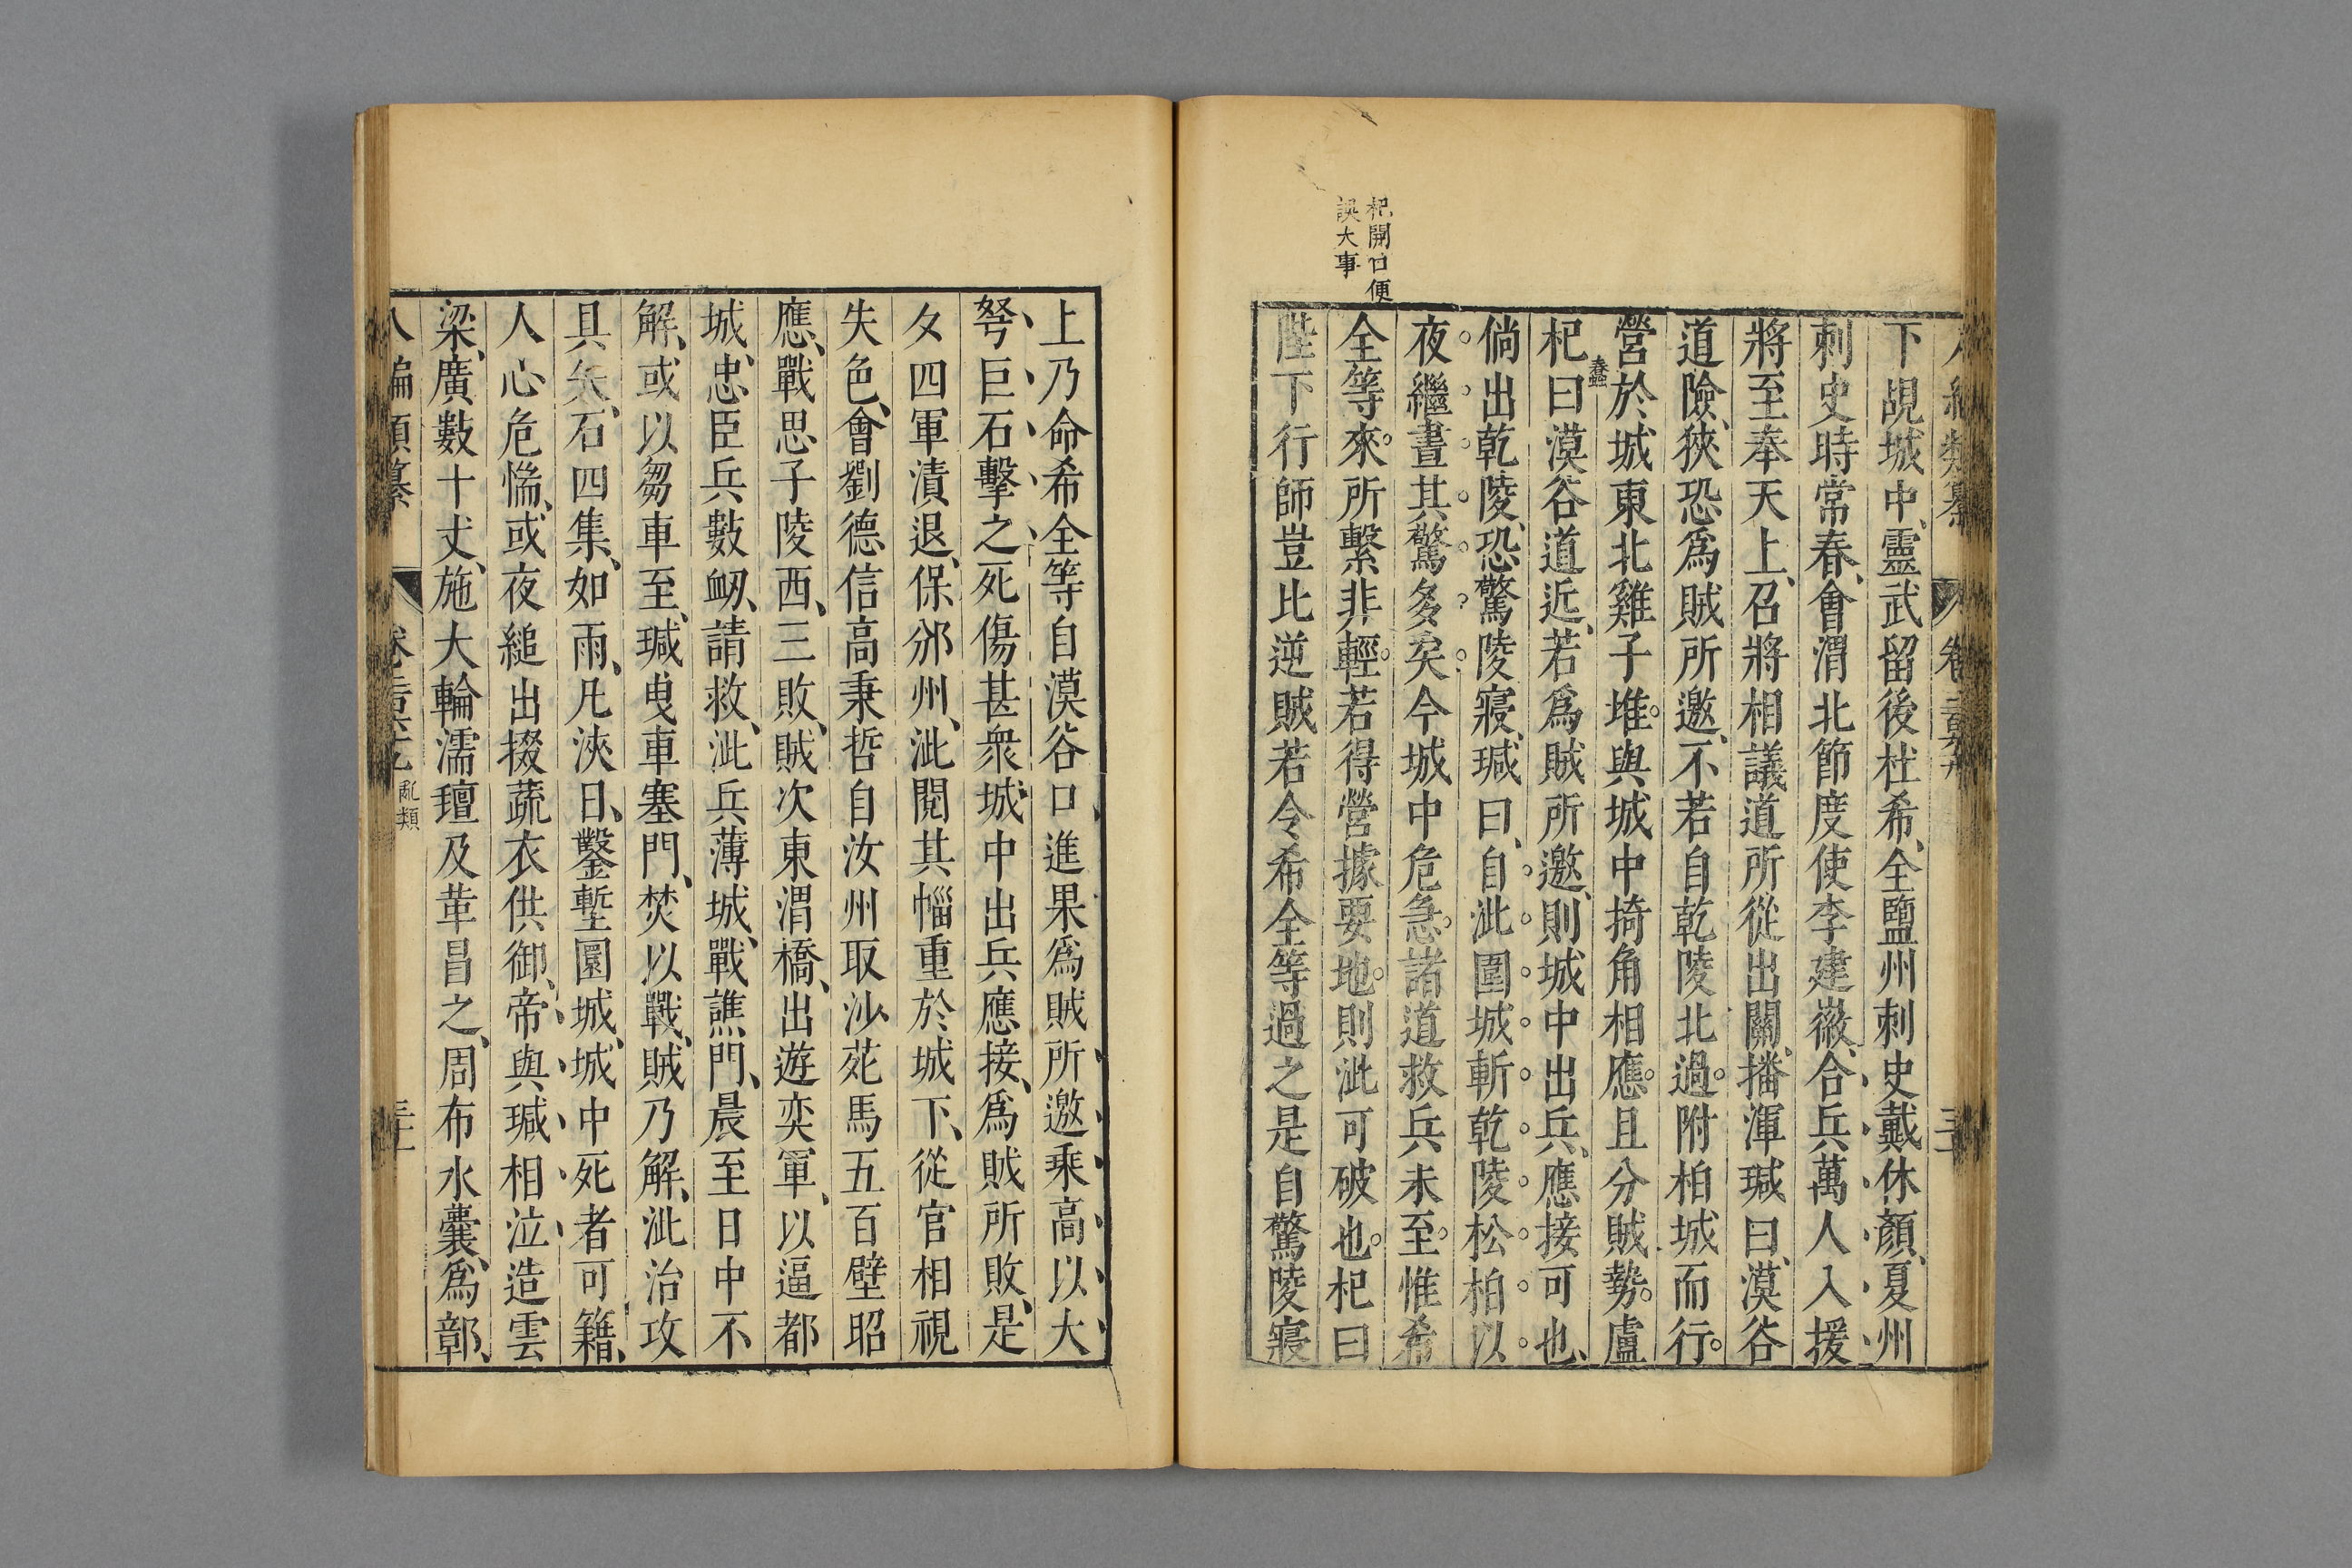 杞開口便
誤大事
下覘城中靈武留後杜希全鹽州刺史戴休顏夏州
刺史時常春會渭北節度使李建徽合兵萬人入援
將至奉天上召將相議道所從出關播渾瑊曰漠谷
道險狹恐爲賊所邀不若自乾陵北過附柏城而行
營於城東北雞子堆與城中掎角相應且分賊勢盧
杞曰漠谷道近若爲賊所邀則城中出兵應接可也
倘出乾陵恐驚陵寢瑊曰自泚圍城斬乾陵松柏以
夜繼晝其驚多矣今城中危急諸道救兵未至惟希
全等來所繫非輕若得營據要地則泚可破也杞曰
陛下行師豈比逆賊若令希全等過之是自驚陵寢
上乃命希全等自漠谷口進果爲賊所邀乘高以大
弩巨石擊之死傷甚衆城中出兵應接爲賊所敗是
夕四軍潰退保邠州泚閱其輜重於城下從官相視
失色會劉德信高秉哲自汝州取沙苑馬五百壁昭
應戰思子陵西三敗賊次東渭橋出遊奕軍以逼都
城忠臣兵數衂請救泚兵薄城戰譙門晨至日中不
解或以芻車至瑊曳車塞門焚以戰賊乃解泚治攻
具矢石四集如雨凡浹日鑿塹圜城城中死者可籍
人心危惴或夜縋出掇蔬衣供御帝與瑊相泣造雲
梁廣數十丈施大輪濡氊及革冒之周布水囊爲鄣
亂類